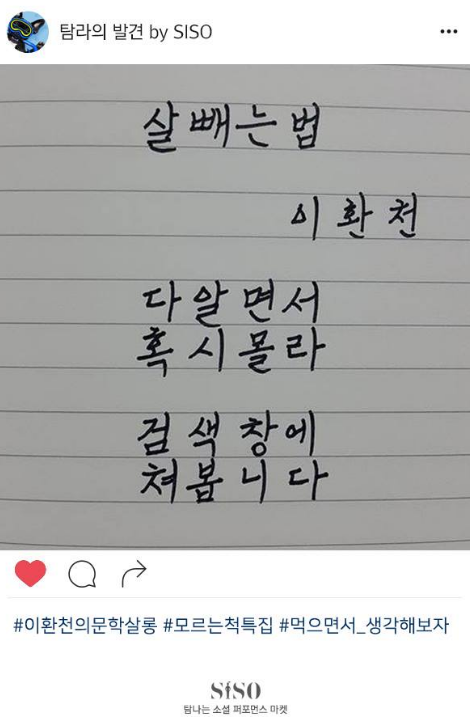 탐라의 발견 by SISO
살빼는법
이환천
다알면서
혹시몰라
검색창에
쳐봅니다
#이환천의문학살롱 #모르는척특집 #먹으면서_생각해보자
SISO
탐나는 소셜 퍼포먼스 마켓